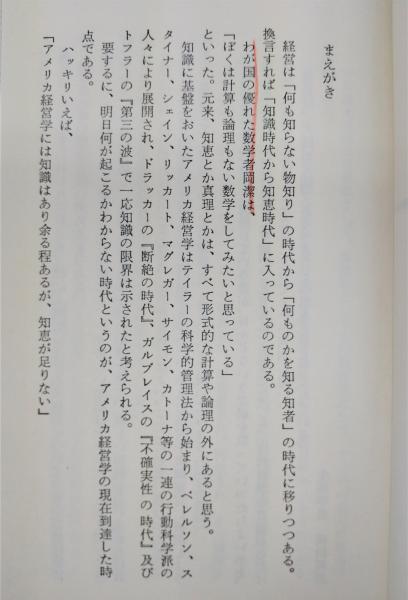 まえがき
経営は「何も知らない物知り」の時代から「何ものかを知る知者」の時代に移りつつある。
換言すれば「知識時代から知恵時代」に入っているのである。
わが国の優れた数学者岡潔は、
「ぼくは計算も論理もない数学をしてみたいと思っている」
といった。元来、知恵とか真理とかは、すべて形式的な計算や論理の外にあると思う。
知識に基盤をおいたアメリカ経営学はテイラーの科学的管理法から始まり、ベレルソン、ス
タイナー、シェイン、リッカート、マグレガー、サイモン、カトーナ等の一連の行動科学派の
人々により展開され、ドラッカーの『断絶の時代』、ガルブレイスの『不確実性の時代』及び
トフラーの『第三の波』で一応知識の限界は示されたと考えられる。
要するに、明日何が起こるかわからない時代というのが、アメリカ経営学の現在到達した時
点である。
ハッキリいえば、
「アメリカ経営学には知識はあり余る程あるが、知恵が足りない」